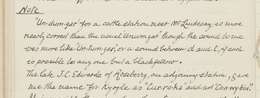 Note
"Undumger" for a cattle station near Mt Lindesay is more
nearly correct than the usual "Unumgar" though the sound to our
ears more like Undumger, or a sound between d and t, if and
so possible to any one but a blackfellow.
The late J.C. Edwards of Roseberry, an adjoining station, gave
me the name for Kyogle as